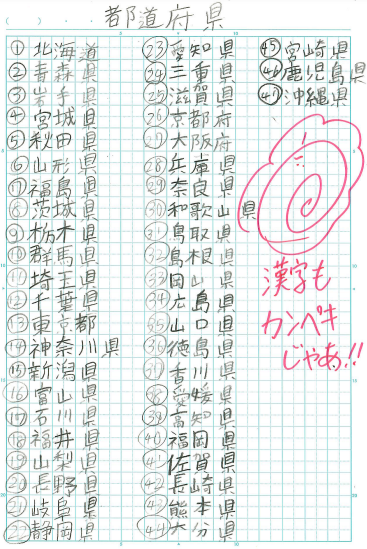 都道府県
① 北海道
② 青森県
③ 岩手県
④ 宮城県
⑤ 秋田県
⑥ 山形県
⑦ 福島県
⑧ 茨城県
⑨ 栃木県
⑩ 群馬県
⑪ 埼玉県
⑫ 千葉県
⑬ 東京都
⑭ 神奈川県
⑮ 新潟県
⑯ 富山県
⑰ 石川県
⑱ 福井県
⑲ 山梨県
⑳ 長野県
㉑ 岐阜県
㉒ 静岡県
㉓ 愛知県
㉔ 三重県
㉕ 滋賀県
㉖ 京都府
㉗ 大阪府
㉘ 兵庫県
㉙ 奈良県
㉚ 和歌山県
㉛ 鳥取県
㉜ 島根県
㉝ 岡山県
㉞ 広島県
㉟ 山口県
㊱ 徳島県
㊲ 香川県
㊳ 愛媛県
㊴ 高知県
㊵ 福岡県
㊶ 佐賀県
㊷ 長崎県
㊸ 熊本県
㊹ 大分県
㊺ 宮崎県
㊻ 鹿児島県
㊼ 沖縄県
漢字も
カンペキ
じゃあ!!